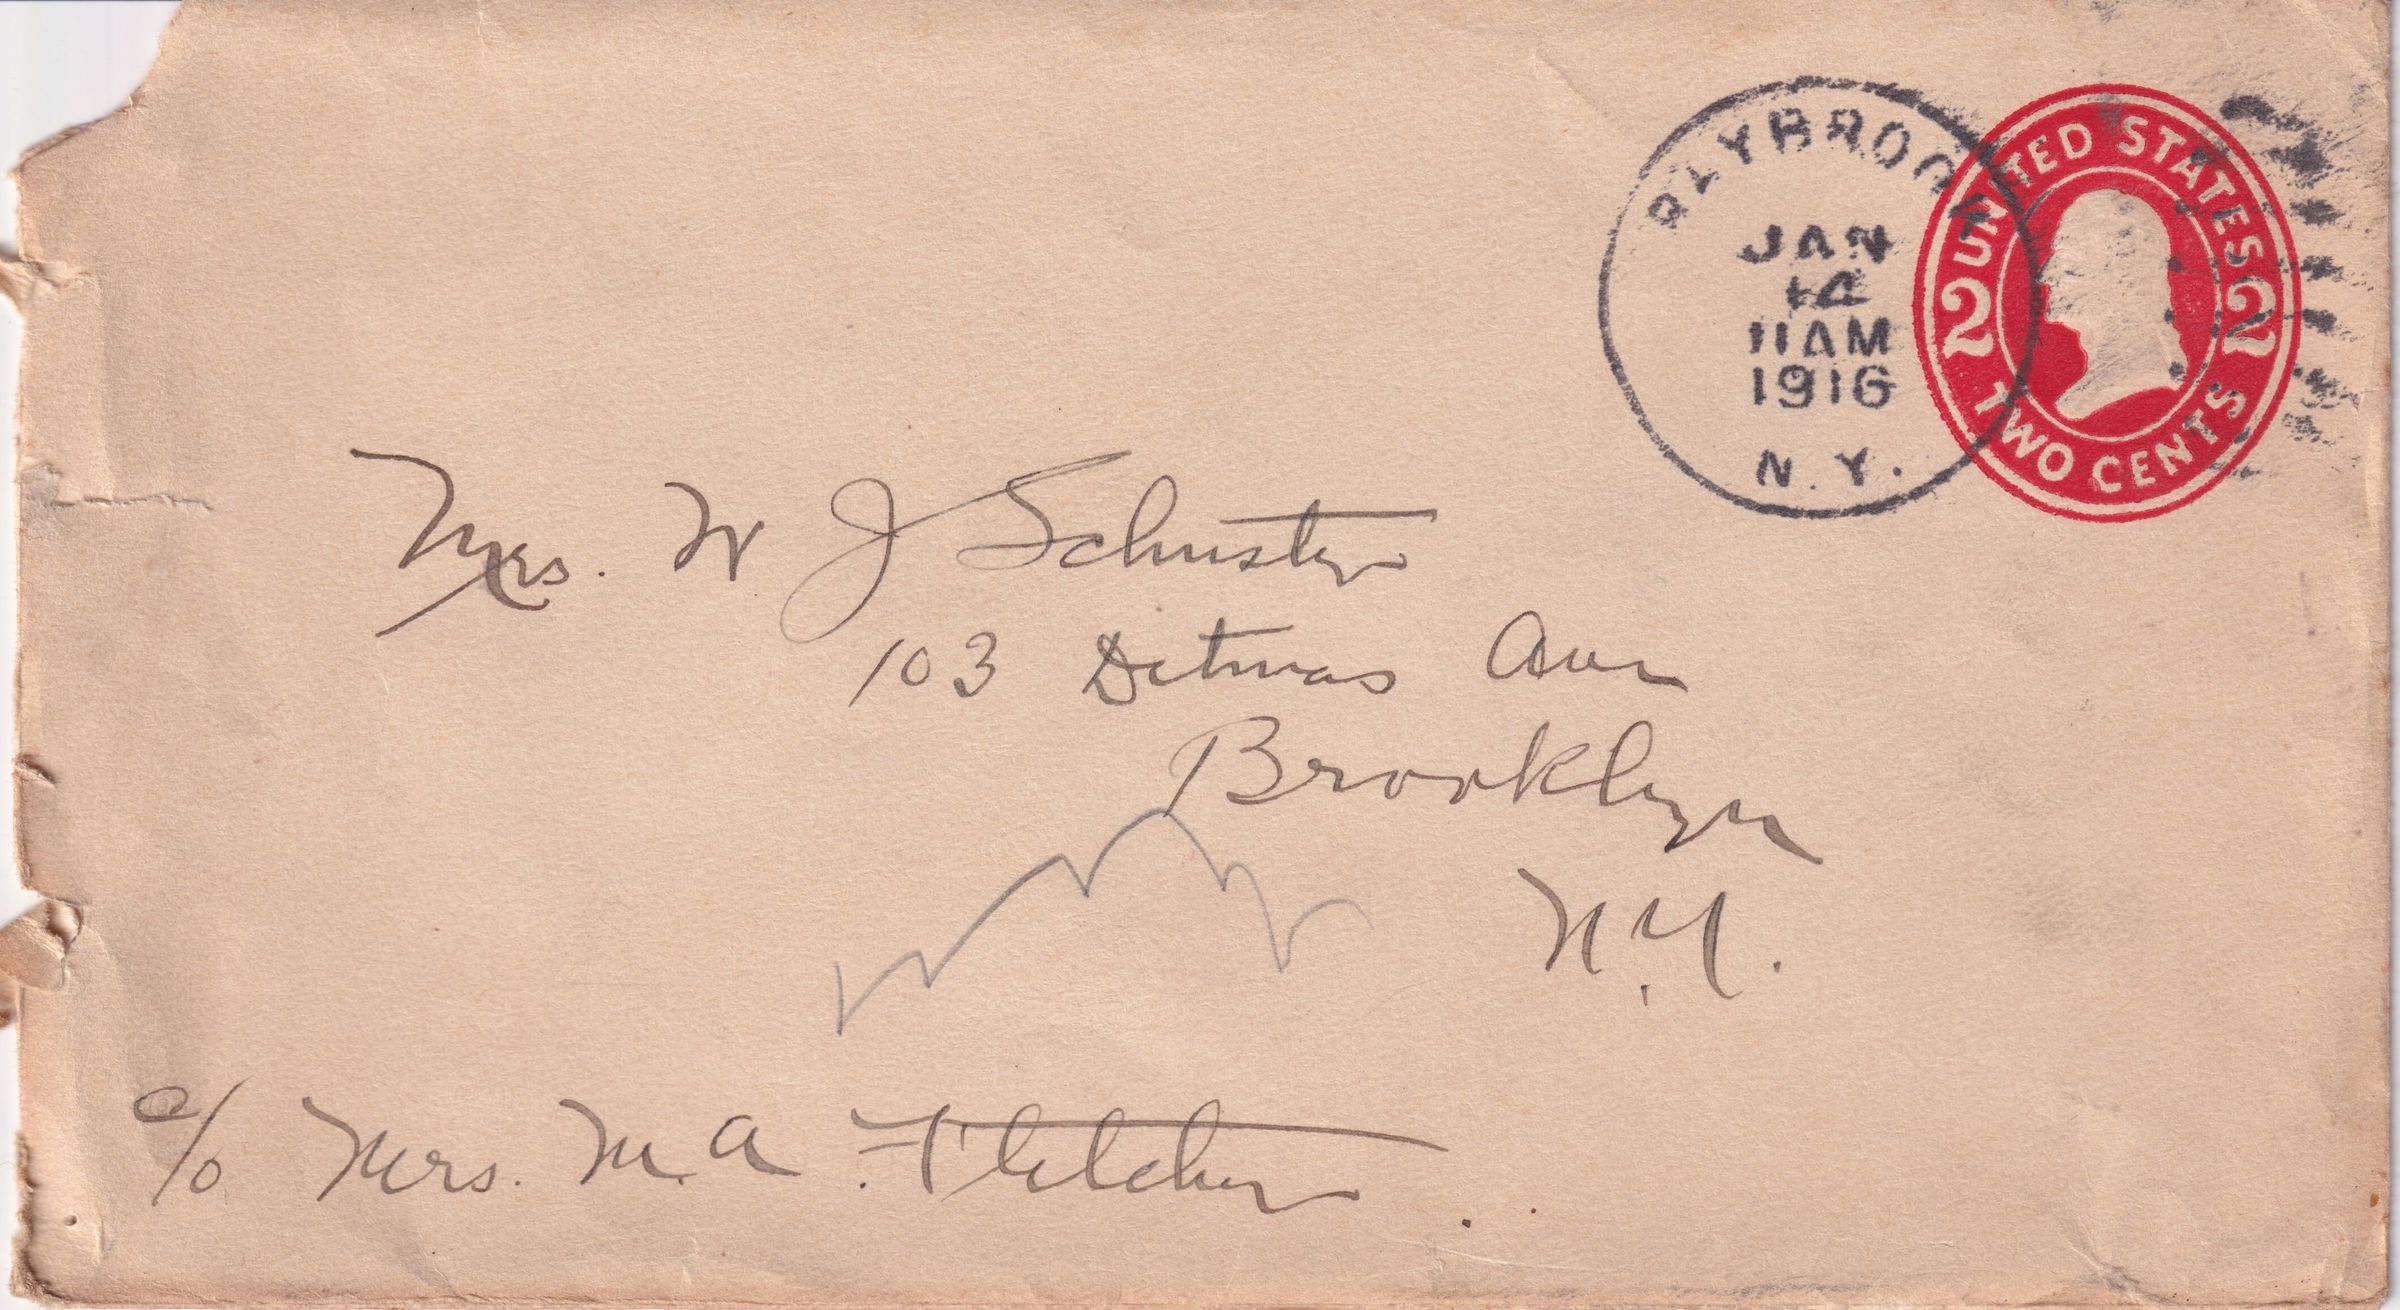 PLYBROOK
JAN
14
11 AM
1916
N.Y.
UNITED STATES
2 2
TWO CENTS
Mrs. W J Schuster
103 Ditmas Ave
Brooklyn
N.Y.
c/o Mrs. M. A. Fletcher.